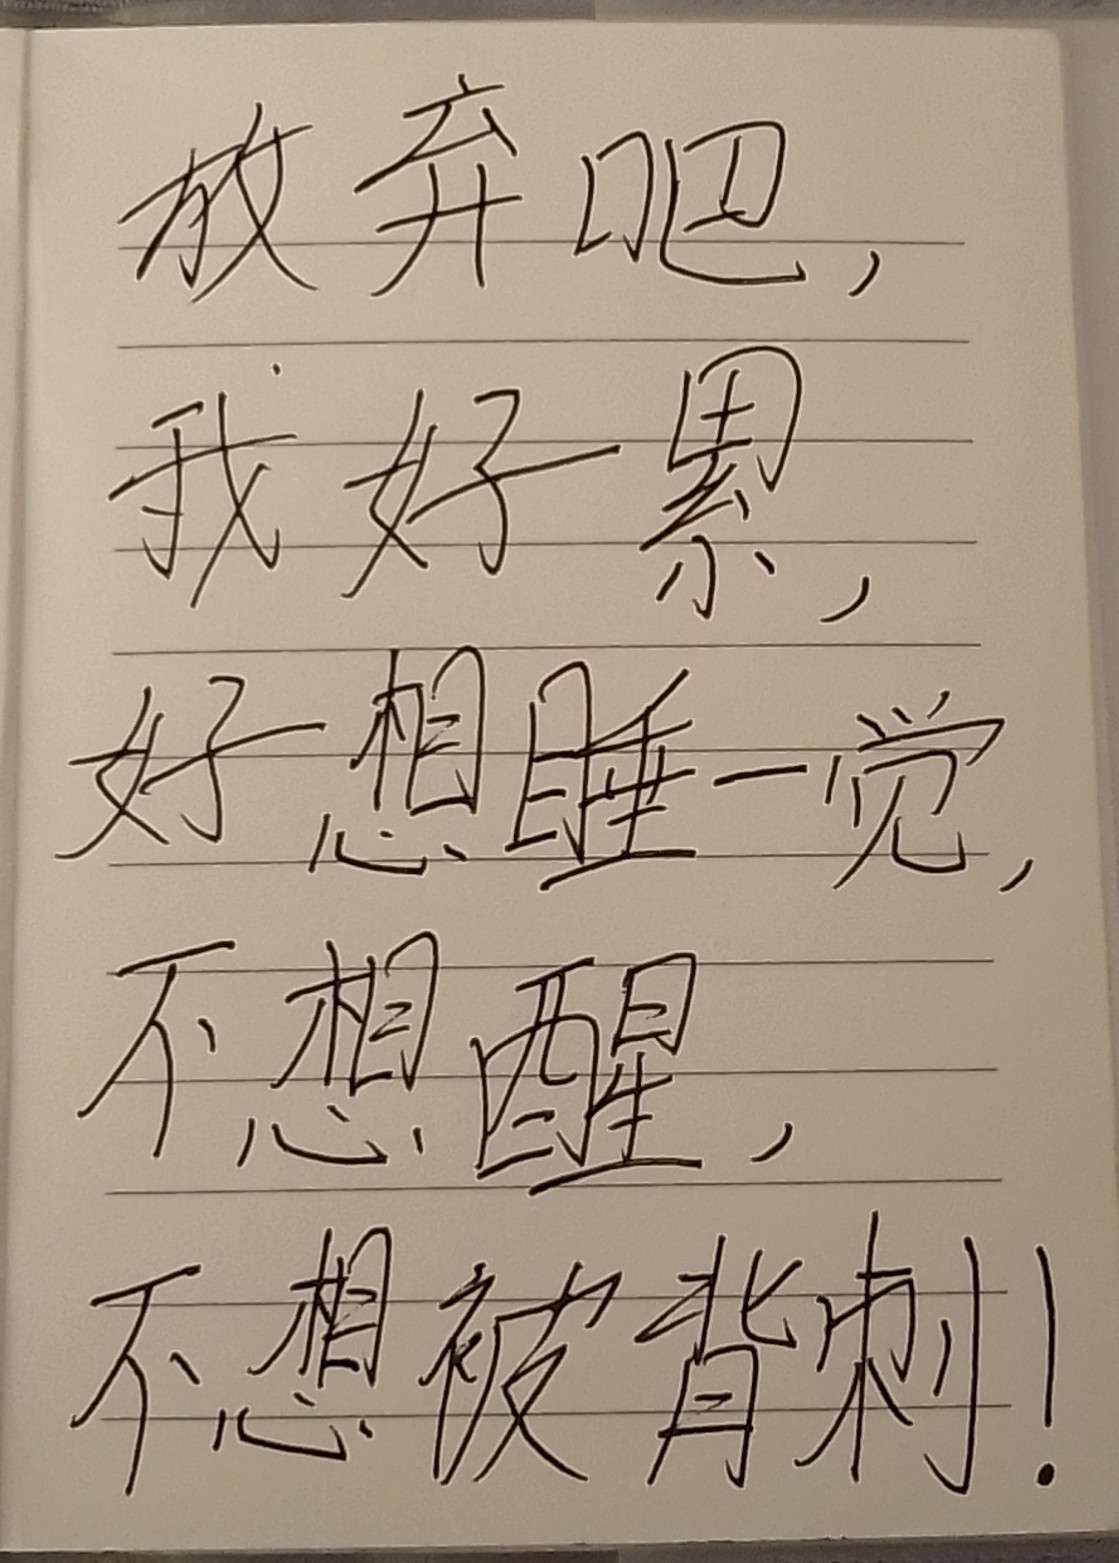 放弃吧，
我好累，
好想睡一觉，
不想醒，
不想被背刺！